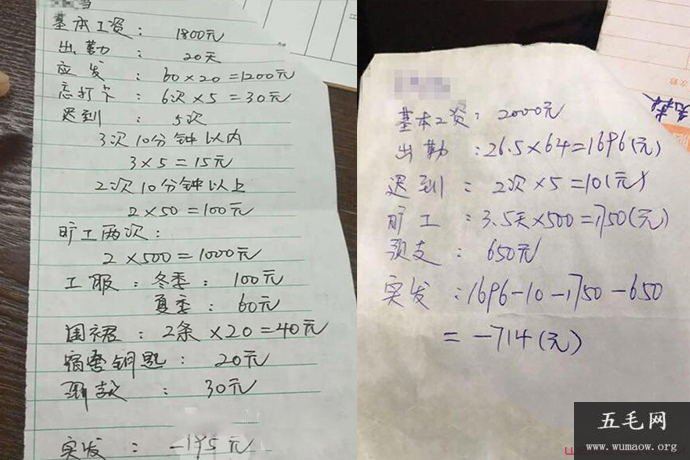 基本工资: 1800元
出勤: 20天
应发: 60×20=1200元
忘打卡: 6次×5=30元
迟到: 5次
3次10分钟以内
3×5=15元
2次10分钟以上
2×50=100元
旷工两次:
2×500=1000元
工服: 冬季: 100元
夏季: 60元
围裙: 2条×20=40元
宿舍钥匙: 20元
罚款: 30元
实发: -195元
基本工资: 2000元
出勤: 26.5×64=1696(元)
迟到: 2次×5=10(元)
旷工: 3.5天×500=1750(元)
预支: 650元
实发: 1696-10-1750-650
=-714(元)
五毛网
www.wumaow.org